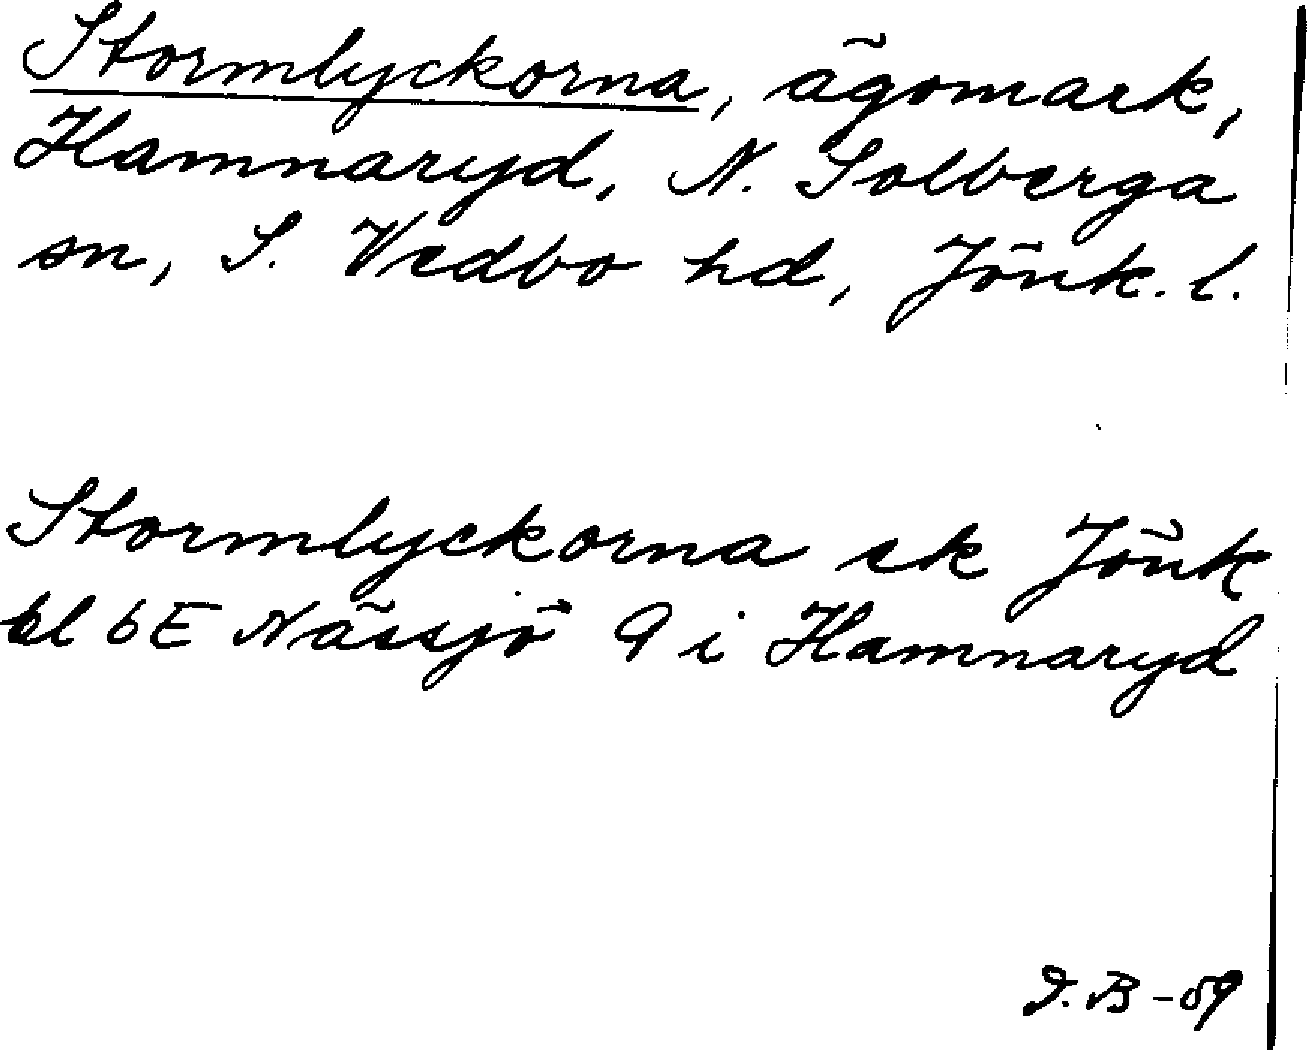 Stormlyckorna, ägomark,
Hamnaryd, N. Solberga
sn, S. Vedbo hd, Jönk. l.
Stormlyckorna ek Jönk
bl 6E Nässjö 9 i Hamnaryd
D. B -59